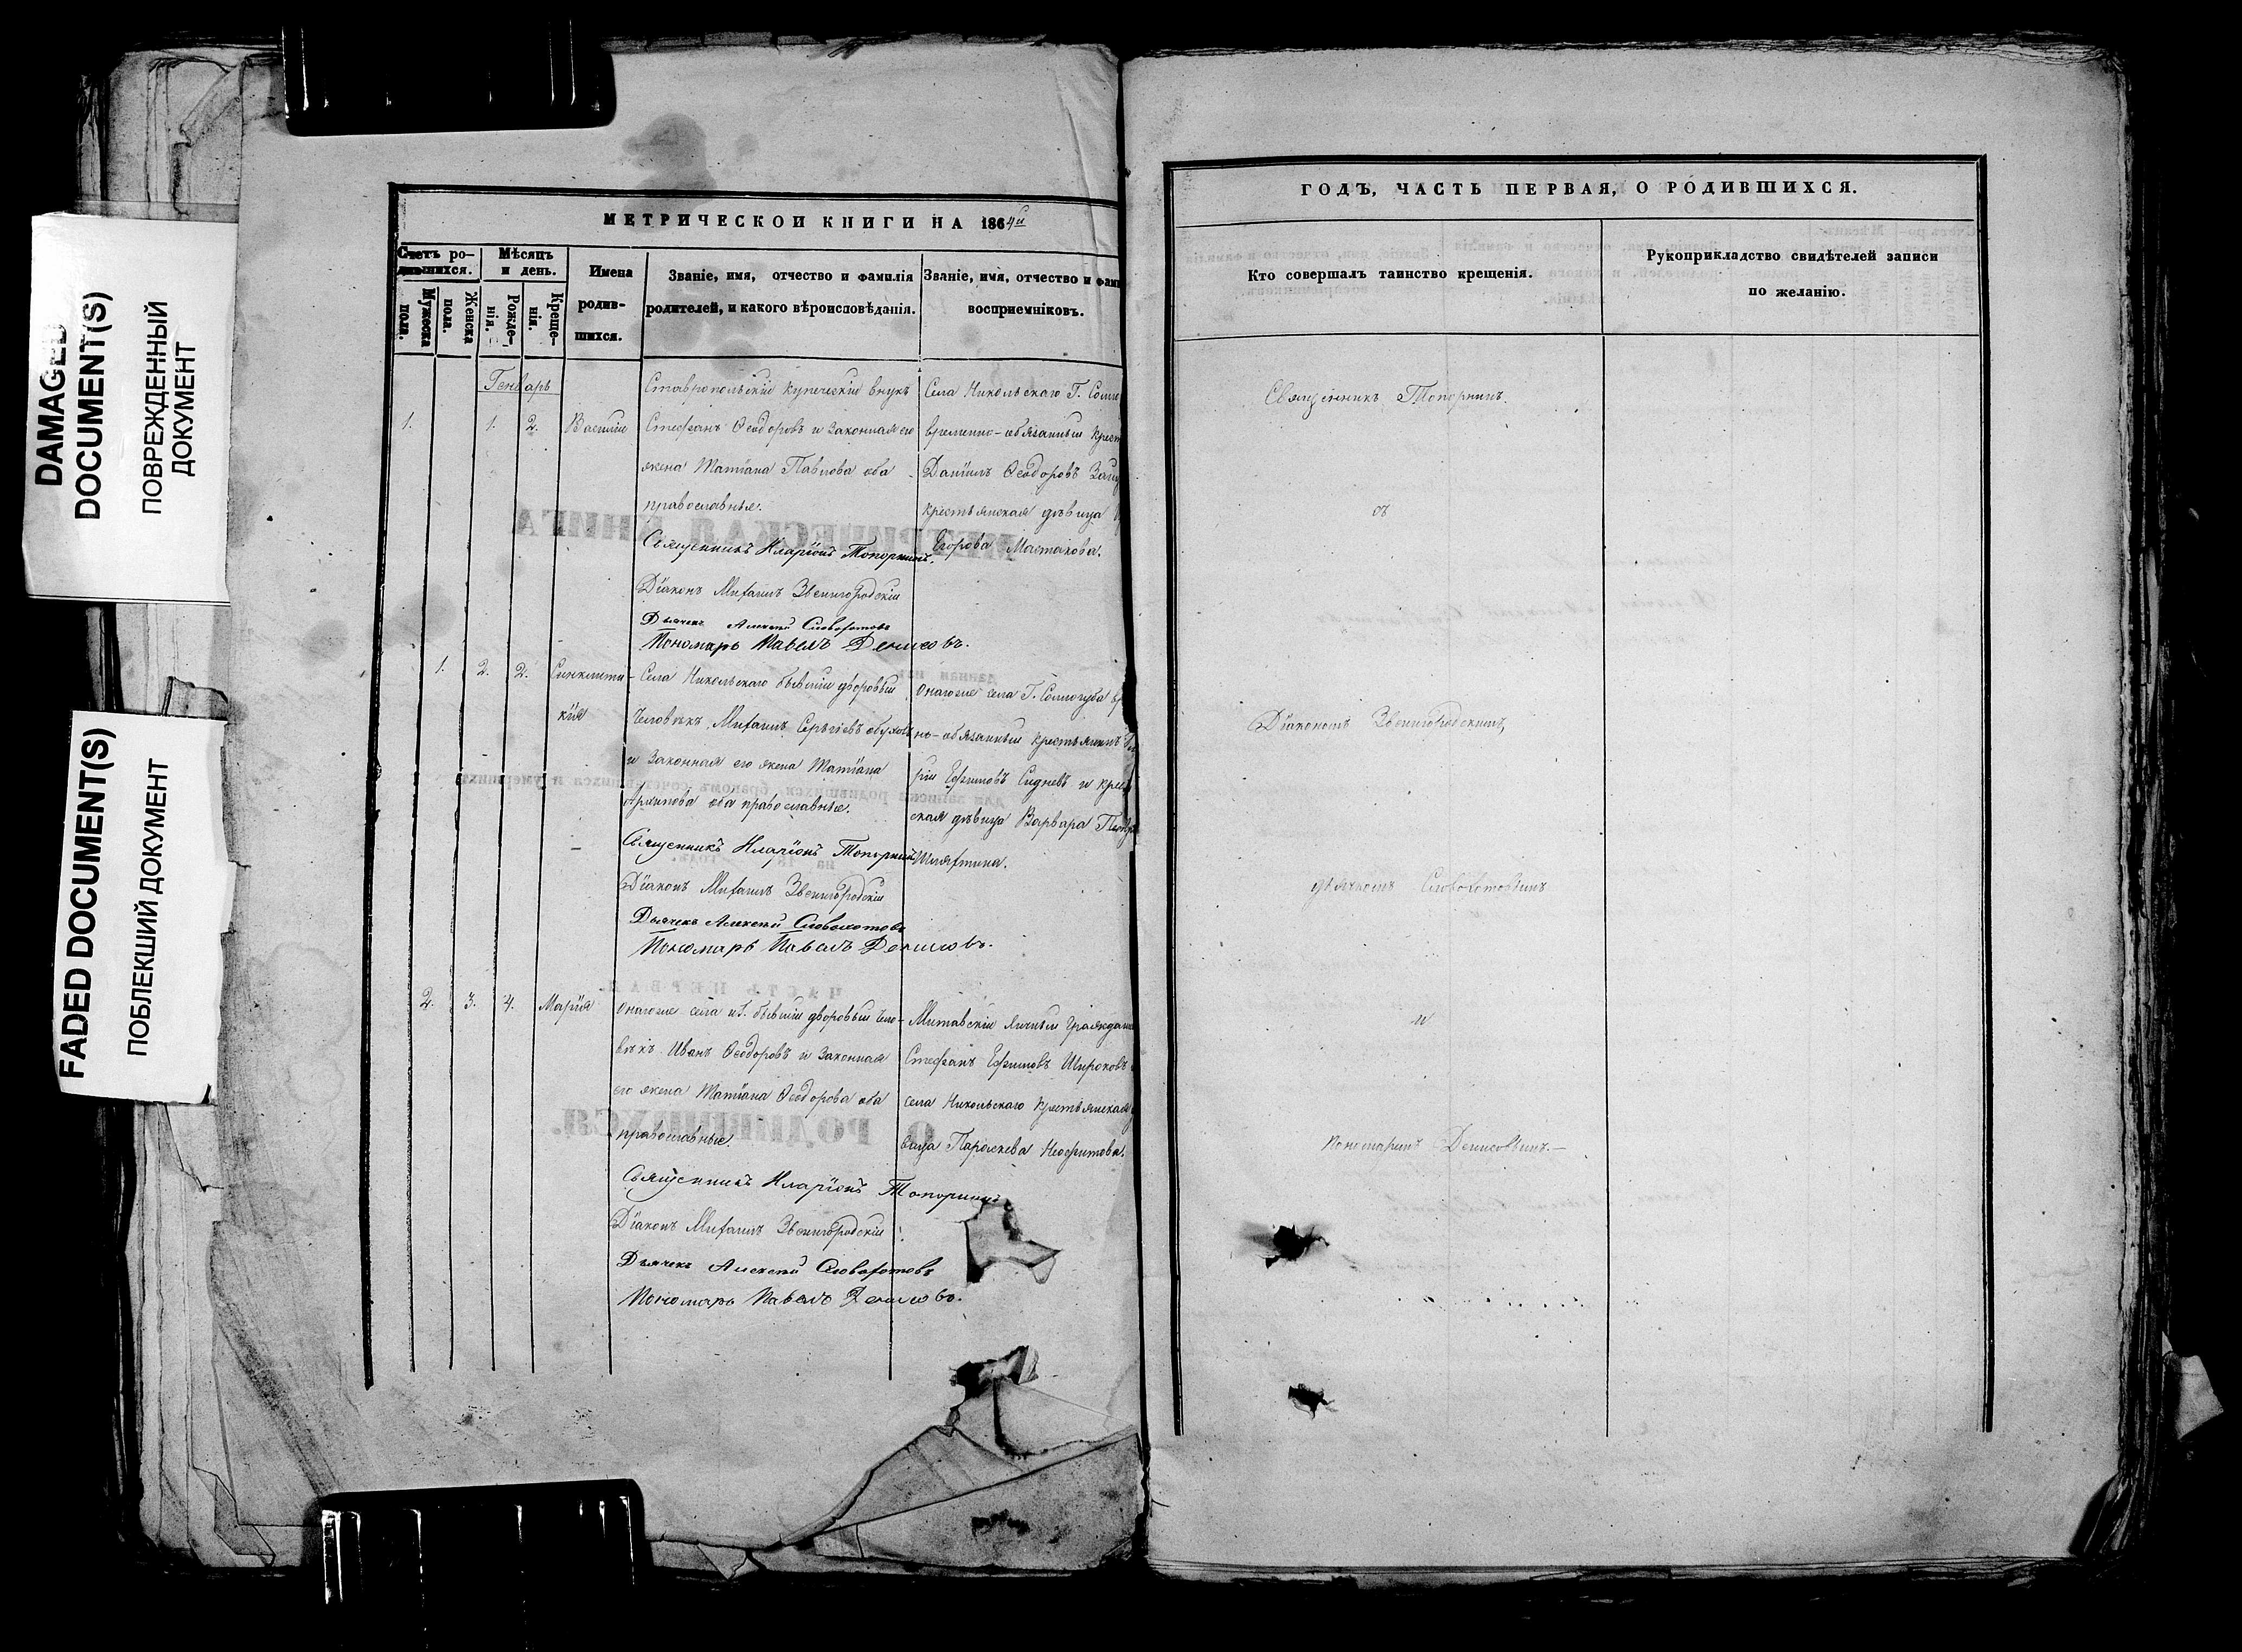 DAMAGED
DOCUMENT(S)
ПОВРЕЖДЕННЫЙ
ДОКУМЕНТ
FADED DOCUMENT(S)
ПОБЛЕКШИЙ ДОКУМЕНТ
МЕТРИЧЕСКОЙ КНИГИ НА 1864й
Счетъ ро-
дившихся.
Мужеска
пола.
Женска
пола.
Мѣсяцъ
и день.
Рожде-
нія.
Креще-
нія.
Имена
родив-
шихся.
Званіе, имя, отчество и фамилія
родителей, и какого вѣроисповѣданія.
Званіе, имя, отчество и фами
восприемніковъ.
Генварь
1. 1. 2. Василій
Ставропольскій купеческій внукъ
Стефанъ Ѳеодоровъ и законная его
жена Татіана Павлова оба
православные.
Священникъ Иларіонъ Топорнинъ.
Діаконъ Михаилъ Звенигородскій
Дьячекъ Алексей Словохотовъ
Пономарь Павелъ Денисовъ.
Села Никольскаго Г. Солло
временно-обязанный крест
Даніилъ Ѳеодоровъ
крестьянская дѣвица
Егорова Мастакова.
1. 2. 2. Синклити-
кія
Села Никольскаго бывшій дворовый
человѣкъ Михаилъ Сергіевъ
и законная его жена Татіана
Архипова оба православные.
Священникъ Иларіонъ Топорнинъ
Діаконъ Михаилъ Звенигородскій
Дьячекъ Алексей Словохотовъ
Пономарь Павелъ Денисовъ.
Онагоже села Г. Соллогуба вр
но-обязанный крестьянинъ
рій Ефимовъ Сидневъ и крест
ская дѣвица Варвара Петр
Шляхтина.
2. 3. 4. Марія
Онагоже села и Г. бывшій дворовый чело-
вѣкъ Иванъ Ѳеодоровъ и законная
его жена Татіана Ѳеодорова оба
православные.
Священникъ Иларіонъ Топорнинъ
Діаконъ Михаилъ Звенигородскій
Дьячекъ Алексей Словохотовъ
Пономарь Павелъ Денисовъ.
Митавскій личный гражданин
Стефанъ Ефимовъ Широковъ
села Никольскаго крестьянская
вица Параскева Неофитова.
ГОДЪ, ЧАСТЬ ПЕРВАЯ, О РОДИВШИХСЯ.
Кто совершалъ таинство крещенія.
Рукоприкладство свидѣтелей записи
по желанію.
Священникъ Топорнинъ.
съ
Діакономъ Звенигородскимъ,
дьячкомъ Словохотовымъ
и
пономаремъ Денисовымъ.